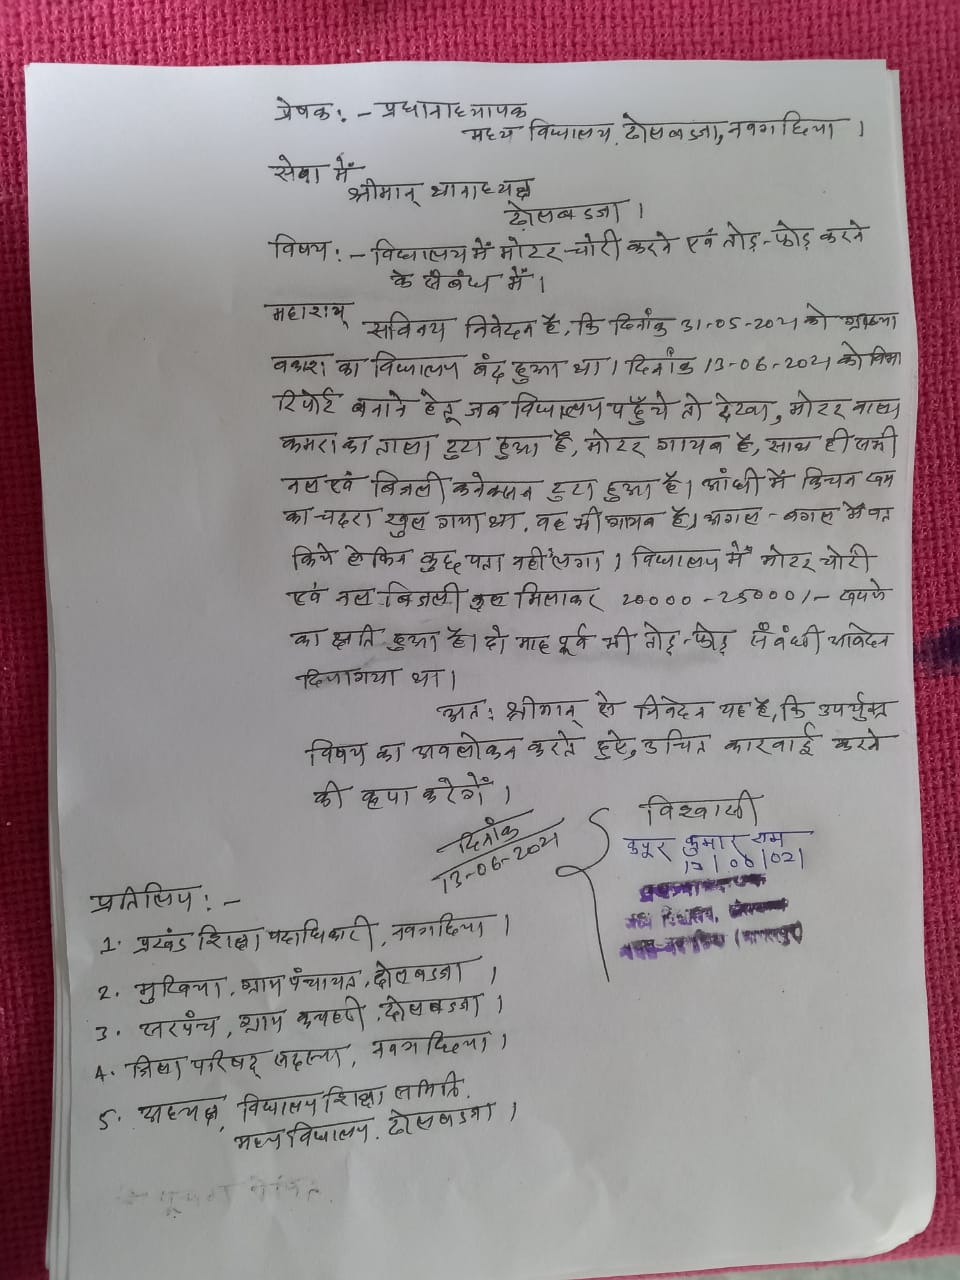 प्रेषक :- प्रधानाध्यापक
मध्य विद्यालय, ढोलबज्जा, नवगछिया ।
सेवा में
श्रीमान् थानाध्यक्ष
ढोलबज्जा ।
विषय :- विद्यालय में मोटर चोरी करने एवं तोड़-फोड़ करने
के संबंध में ।
महाशय
सविनय निवेदन है, कि दिनांक 31-05-2021 को
का विद्यालय बंद हुआ था । दिनांक 13-06-2021 को
रिपोर्ट बनाने हेतू जब विद्यालय पहुँचे तो देखा, मोटर वाला
कमरा का ताला टुटा हुआ है, मोटर गायब है, साथ ही सभी
नल एवं बिजली कनेक्सन टुटा हुआ है । आंधी में किचन
का चदरा खुल गया था, वह भी गायब है । अगल-बगल में पता
किये लेकिन कुछ पता नहीं लगा । विद्यालय में मोटर चोरी
एवं नल बिजली कुल मिलाकर 20000-25000/- रूपये
का क्षति हुआ है । दो माह पूर्व भी तोड़-फोड़ संबंधी आवेदन
दिया गया था ।
अतः श्रीमान् से निवेदन यह है, कि उपर्युक्त
विषय का अवलोकन करते हुए, उचित कारवाई करने
की कृपा करेगें ।
विश्वासी
दिनांक
13-06-2021
कुमार राम
प्रतिलिपि :-
1. प्रखंड शिक्षा पदाधिकारी, नवगछिया ।
2. मुखिया, ग्राम पंचायत, ढोलबज्जा ।
3. सरपंच, ग्राम कचहरी, ढोलबज्जा ।
4. जिला परिषद् सदस्या, नवगछिया ।
5. अध्यक्ष, विद्यालय शिक्षा समिति,
मध्य विद्यालय, ढोलबज्जा ।